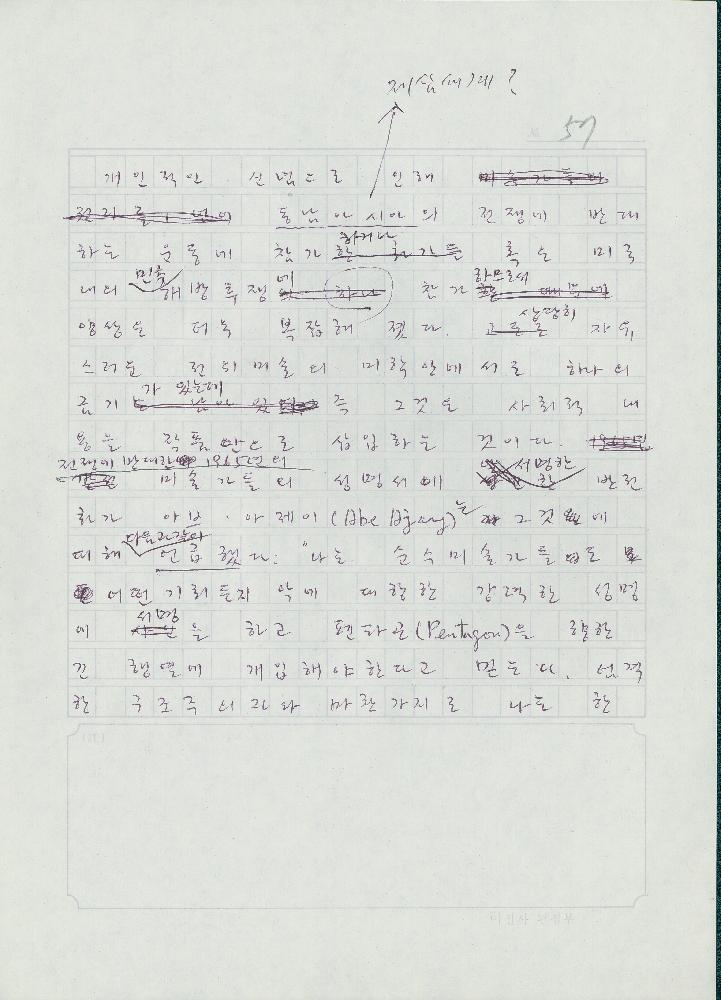 제삼세계?
57
개인적인 신념으로 인해 미술가들이
동남아시아의 전쟁에 반대
하거나
하는 운동에 참가한 화가들 혹은 미국
민족 에 하므로써
내의 해방투쟁 하나 참가
상당히
양상은 더욱 복잡해 졌다. 고르는 자위
스러운 전위미술의 미학안에서로 하나의
가 있는데
줄기 남아 있 즉 그것은 사회적 내
용을 작품만으로 삽입하는 것이다. 1965년
전쟁에 반대한 1965년의 서명한
미술가들의 성명서에 한 반전
화가 아브·아제이(Abe Ajay)는 그것에
다음과같이
대해 언급했다: "나는 순수미술가들도
어떤 기회든지 악에 대항한 강력한 성명
서명
에 을 하고 펜타곤(Pentagon)을 향한
긴 행렬에 개입해야한다고 믿는다. 엄격
한 구조주의과와 마찬가지로 나는 한
미진사 편집부